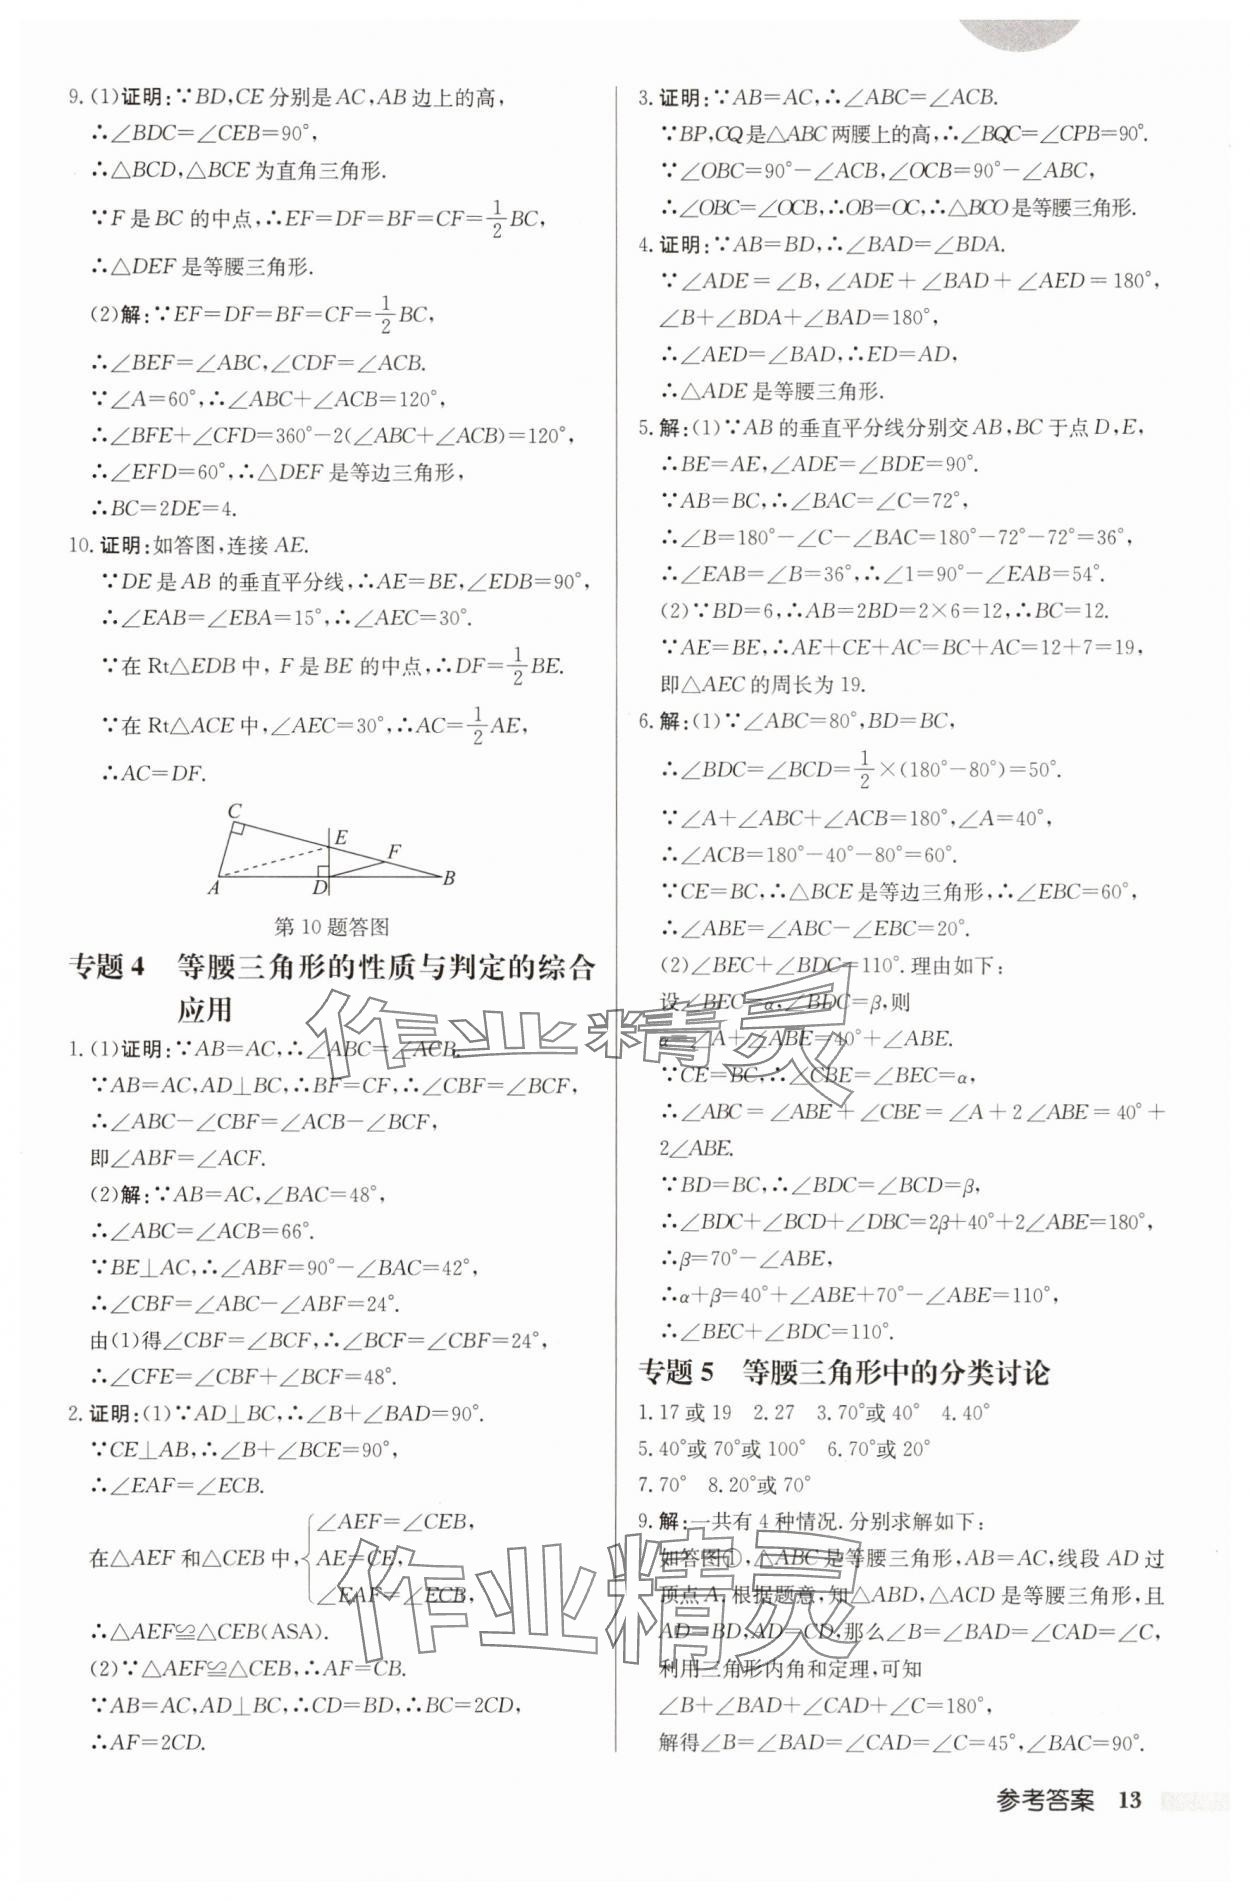 9. (1)证明:∵BD,CE分别是AC,AB边上的高,
∴∠BDC=∠CEB=90°,
∴△BCD,△BCE为直角三角形.
∵F是BC的中点,∴EF=DF=BF=CF=1/2BC,
∴△DEF是等腰三角形.
(2)解:∵EF=DF=BF=CF=1/2BC,
∴∠BEF=∠ABC,∠CDF=∠ACB.
∵∠A=60°,∴∠ABC+∠ACB=120°,
∴∠BFE+∠CFD=360°-2(∠ABC+∠ACB)=120°,
∴∠EFD=60°,∴△DEF是等边三角形,
∴BC=2DE=4.
10. 证明:如答图,连接AE.
∵DE是AB的垂直平分线,∴AE=BE,∠EDB=90°,
∴∠EAB=∠EBA=15°,∴∠AEC=30°.
∵在Rt△EDB中,F是BE的中点,∴DF=1/2BE.
∵在Rt△ACE中,∠AEC=30°,∴AC=1/2AE,
∴AC=DF.
C
E
F
A
D
B
第10题答图
专题4 等腰三角形的性质与判定的综合
应用
1. (1)证明:∵AB=AC,∴∠ABC=∠ACB.
∵AB=AC,AD⊥BC,∴BF=CF,∴∠CBF=∠BCF,
∴∠ABC-∠CBF=∠ACB-∠BCF,
即∠ABF=∠ACF.
(2)解:∵AB=AC,∠BAC=48°,
∴∠ABC=∠ACB=66°.
∵BE⊥AC,∴∠ABF=90°-∠BAC=42°,
∴∠CBF=∠ABC-∠ABF=24°.
由(1)得∠CBF=∠BCF,∴∠BCF=∠CBF=24°,
∴∠CFE=∠CBF+∠BCF=48°.
2. 证明:(1)∵AD⊥BC,∴∠B+∠BAD=90°.
∵CE⊥AB,∴∠B+∠BCE=90°,
∴∠EAF=∠ECB.
∠AEF=∠CEB,
在△AEF和△CEB中,{AE=CE,
∠EAF=∠ECB,
∴△AEF≌△CEB(ASA).
(2)∵△AEF≌△CEB,∴AF=CB.
∵AB=AC,AD⊥BC,∴CD=BD,∴BC=2CD,
∴AF=2CD.
3. 证明:∵AB=AC,∴∠ABC=∠ACB.
∵BP,CQ是△ABC两腰上的高,∴∠BQC=∠CPB=90°.
∵∠OBC=90°-∠ACB,∠OCB=90°-∠ABC,
∴∠OBC=∠OCB,∴OB=OC,∴△BCO是等腰三角形.
4. 证明:∵AB=BD,∴∠BAD=∠BDA.
∵∠ADE=∠B,∠ADE+∠BAD+∠AED=180°,
∠B+∠BDA+∠BAD=180°,
∴∠AED=∠BAD,∴ED=AD,
∴△ADE是等腰三角形.
5. 解:(1)∵AB的垂直平分线分别交AB,BC于点D,E,
∴BE=AE,∠ADE=∠BDE=90°.
∵AB=BC,∴∠BAC=∠C=72°,
∴∠B=180°-∠C-∠BAC=180°-72°-72°=36°,
∴∠EAB=∠B=36°,∴∠1=90°-∠EAB=54°.
(2)∵BD=6,∴AB=2BD=2×6=12,∴BC=12.
∵AE=BE,∴AE+CE+AC=BC+AC=12+7=19,
即△AEC的周长为19.
6. 解:(1)∵∠ABC=80°,BD=BC,
∴∠BDC=∠BCD=1/2×(180°-80°)=50°.
∵∠A+∠ABC+∠ACB=180°,∠A=40°,
∴∠ACB=180°-40°-80°=60°.
∵CE=BC,∴△BCE是等边三角形,∴∠EBC=60°,
∴∠ABE=∠ABC-∠EBC=20°.
(2)∠BEC+∠BDC=110°.理由如下:
设∠BEC=α,∠BDC=β,则
α=∠A+∠ABE=40°+∠ABE.
∵CE=BC,∴∠CBE=∠BEC=α,
∴∠ABC=∠ABE+∠CBE=∠A+2∠ABE=40°+
2∠ABE.
∵BD=BC,∴∠BDC=∠BCD=β,
∴∠BDC+∠BCD+∠DBC=2β+40°+2∠ABE=180°,
∴β=70°-∠ABE,
∴α+β=40°+∠ABE+70°-∠ABE=110°,
∴∠BEC+∠BDC=110°.
专题5 等腰三角形中的分类讨论
1. 17或19 2. 27 3. 70°或40° 4. 40°
5. 40°或70°或100° 6. 70°或20°
7. 70° 8. 20°或70°
9. 解:一共有4种情况.分别求解如下:
如答图①,△ABC是等腰三角形,AB=AC,线段AD过
顶点A,根据题意,知△ABD,△ACD是等腰三角形,且
AD=BD,AD=CD,那么∠B=∠BAD=∠CAD=∠C,
利用三角形内角和定理,可知
∠B+∠BAD+∠CAD+∠C=180°,
解得∠B=∠BAD=∠CAD=∠C=45°,∠BAC=90°.
作业精灵
作业精灵
参考答案 13